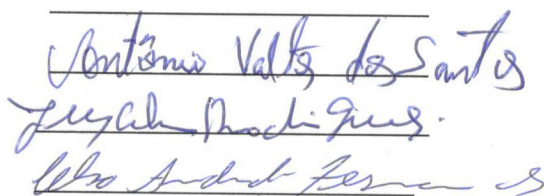 Antônio Valter dos Santos
Rodrigues.
Celso Andrade Fernandes